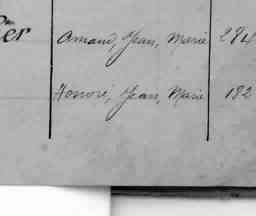 er Amand, Jean, Marie 284
Honoré, Jean, Marie 182